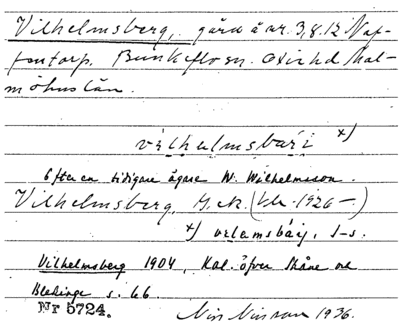 Vilhelmsberg, gård å nr. 3,8.12 Nap-
pentorp. Bunkeflo sn. Oxie hd Mal-
möhus län.
vilhelmsbärj x)
Efter en tidigare ägare W. Wilhelmsson.
Vilhelmsberg, J.R. (Kbr. 1926 –)
x) velamsbärj, s-s.
Vilhelmsberg 1904, Kal. öfver Skåne och
Blekinge s. 66.
Nr 5724.
Nils Nilsson 1936.